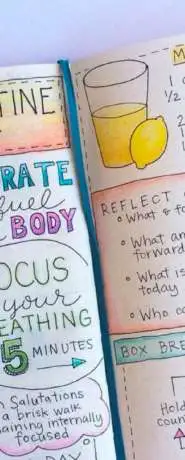 TINE
RATE
fuel
BODY
OCUS
your
EATHING
5 MINUTES
Salutations
a brisk walk
aining internally
focused
DAY
M
1
1/2
2
REFLECT
• What
• What an
forward
• What is
today
• Who ca
BOX BRE
Hold
coun